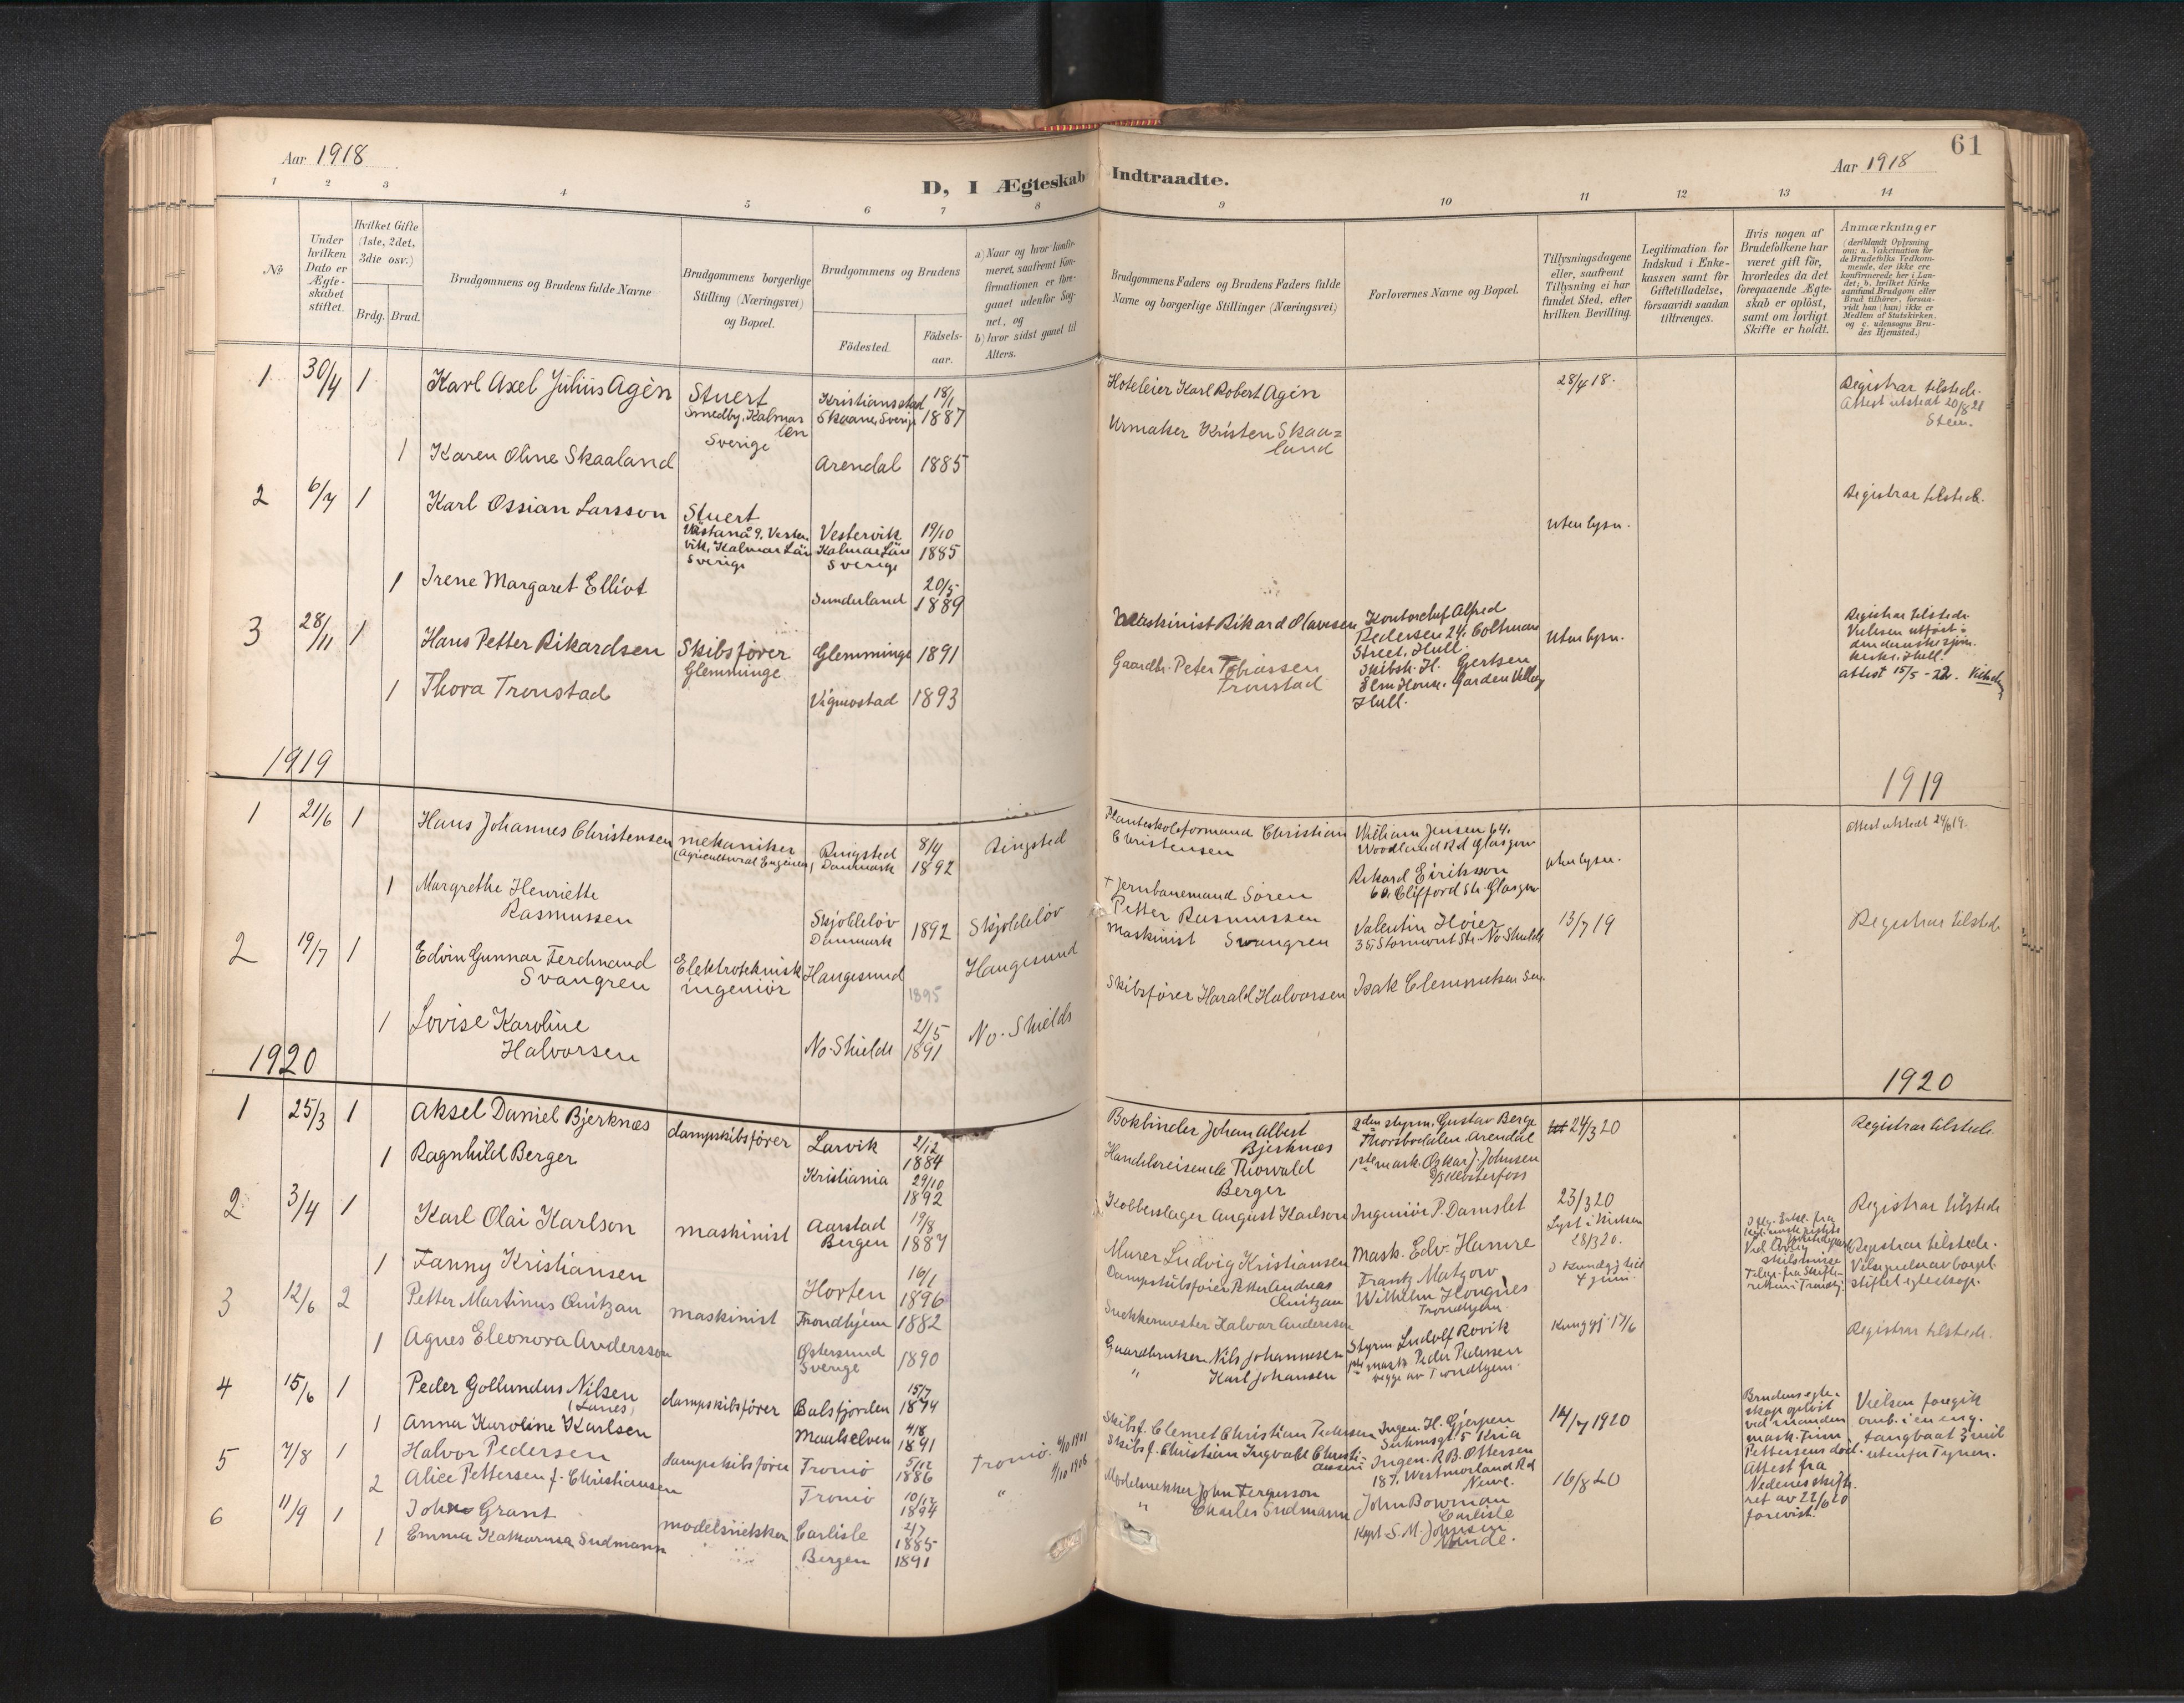 Aar 1918
D, I Ægteskab Indtraadte.
Aar 1918
61
1 2 3 4 5 6 7 8 9 10 11 12 13 14
No
Under hvilken Dato er Ægteskabet stiftet.
Hvilket Gifte (1ste, 2det, 3die osv.)
Brdg. Brud.
Brudgommens og Brudens fulde Navne
Brudgommens borgerlige Stilling (Næringsvei) og Bopæl.
Brudgommens og Brudens
Fødested.
Fødselsaar.
a) Naar og hvor konfirmeret, saafremt Konfirmationen er foregaaet udenfor Sognet, og
b) hvor sidst gaaet til Alters.
Brudgommens Faders og Brudens Faders fulde Navne og borgerlige Stillinger (Næringsvei)
Forlovernes Navne og Bopæl.
Tillysningsdagene eller, saafremt Tillysning ei har fundet Sted, efter hvilken Bevilling.
Legitimation for Indskud i Enkekassen samt for Giftetilladelse, forsaavidt saadan tiltrænges.
Hvis nogen af Brudefolkene har været gift før, hvorledes da det foregaaende Ægteskab er opløst, samt om lovligt Skifte er holdt.
Anmærkninger
(deriblandt Oplysning om: a. Vakcination for de Brudefolks Vedkommende, der ikke ere konfirmerede her i Landet; b. hvilket Kirkesamfund Brudgom eller Brud tilhører, forsaavidt han (hun) ikke er Medlem af Statskirken, og c. udensogns Brudes Hjemsted.)
1 30/4 1 Karl Axel Julius Agèn Stuert Kristiansstad 18/1 Hoteleier Karl Robert Agèn 28/4 18. Registrar tilstede.
Smedby, Kalmar Skaane, Sverige 1887 Attest utstedt 20/8 21
län Sverige
1 Karen Oline Skaaland Arendal 1885 Urmaker Kristen Skaaland
2 6/7 1 Karl Ossian Larsson Stuert Registrar tilstede.
Vestervik 19/10 uten lysn.
vik, Kalmar Län Kalmar Län 1885
Sverige Sverige
1 Irene Margaret Elliot Sunderland 20/5 1889
3 28/11 1 Hans Petter Rikardsen Skibsfører Glemminge 1891 Maskinist Rikard Hansen Kontorchef Alfred Registrar tilstede.
Glemminge Pedersen 24, Coltman uten lysn. Vielsen utført i
Street, Hull. den danske sjøm.
1 Thora Tronstad Vigmostad 1893 Gaardbr. Peter Tobiassen Skibsh. H. Gjertsen kirke, Hull.
Tronstad Elm House, Garden Village attest 15/5 - 22.
Hull.
1919 1919
1 21/6 1 Hans Johannes Christensen mekaniker Ringsted 8/4 Ringsted Planteskoleformand Christian William Jensen 64, attest utstedt 24/6 19.
(Agricultural Engineer) Danmark 1892 Christensen Woodland Rd Glasgow
uten lysn.
1 Margrethe Henriette Rikard Eiriksson
Rasmussen Skjoldeløv 1892 Skjoldeløv + Jernbanemand Søren Clifford Str. Glasgow
Danmark Petter Rasmussen
2 19/7 1 Edvin Gunnar Ferdinand Elektroteknisk Haugesund 1895 Haugesund Maskinist Svangren Valentin Høier 13/7 19 Registrar tilstede
Svangren ingeniør 35 Stormont Str. No Shields
1 Lovise Karoline No. Shields 21/5 No. Shields Skibsfører Harald Halvorsen Isak Clemmetsen Sen.
Halvorsen 1891
1920 1920
1 25/3 1 Aksel Daniel Bjerknæs dampskibsfører Larvik 2/12 Bokbinder Johan Albert 2den styrm. Gustav Berge 24/3 20 Registrar tilstede.
1884 Bjerknæs Thorsbodalen Arendal
1 Ragnhild Berger Kristiania 29/10 Handelsreisende Thorvald 1ste mask. Oskar J. Johnsen
1892 Berger S/S Klosterfoss
2 3/4 1 Karl Olai Karlson maskinist Aarstad 19/8 Kobberslager August Karlson Ingeniør P. Damslet 23/3 20 Registrar tilstede
Bergen 1887 Lyst i kirken
1 Fanny Kristiansen Horten 16/1 Murer Ludvig Kristiansen Mask. Edv. Hamre 28/3 20.
1896
3 12/6 2 Petter Martinus Quitzau maskinist Trondhjem 1882 Dampskibsfører Petter Andreas Frantz Matzow 4 juni Registrar tilstede.
Quitzau Wilhelm Hongnes
Trondhjem
1 Agnes Eleonora Andersson Østersund 1890 Snekkermester Halvar Anderson
Sverige
4 15/6 1 Peder Gollundus Nilsen dampskibsfører Balsfjorden 15/7 Gaardbruker Nils Johannesen Styrm Ludolf Rovik Kungj. 17/6 Registrar tilstede.
(Lanes) 1874 1ste mask. Peder Pedersen
1 Anna Karoline Karlsen Maalselven 4/8 " Karl Johansen begge av Trondhjem.
1891
5 7/8 1 Halvor Pedersen dampskibsfører Tromø 5/12 Tromø. 1901 Skibsf. Clemet Christian Pedersen Ingen. H. Gjerpen 14/7 1920 Brudens egteskap opløst ved manden mask. Finn Pettersens død. Attest fra Nedenes skifteret av 22/6 20 forevist. Vielsen foregik omb. i en eng. fangbaat 3 mil utenfor Tynen.
1886 Suhmsgt. 5 Kria
2 Alice Pettersen f. Christiansen Tromø 10/12 " 1908 Skibsf. Christian Ingvald Christiansen Ingen. R. B. Ottersen
1894 187, Westmorland Rd
Newc.
6 11/9 1 John Grant modelsnekker Carlisle 2/7 Modelsnekker John Fergusson John Bowman 16/8 20
1885 Carlisle
1 Emma Katharina Sudmann Bergen 1891 " Charles Sudmann Kapt. S. M. Johnsen